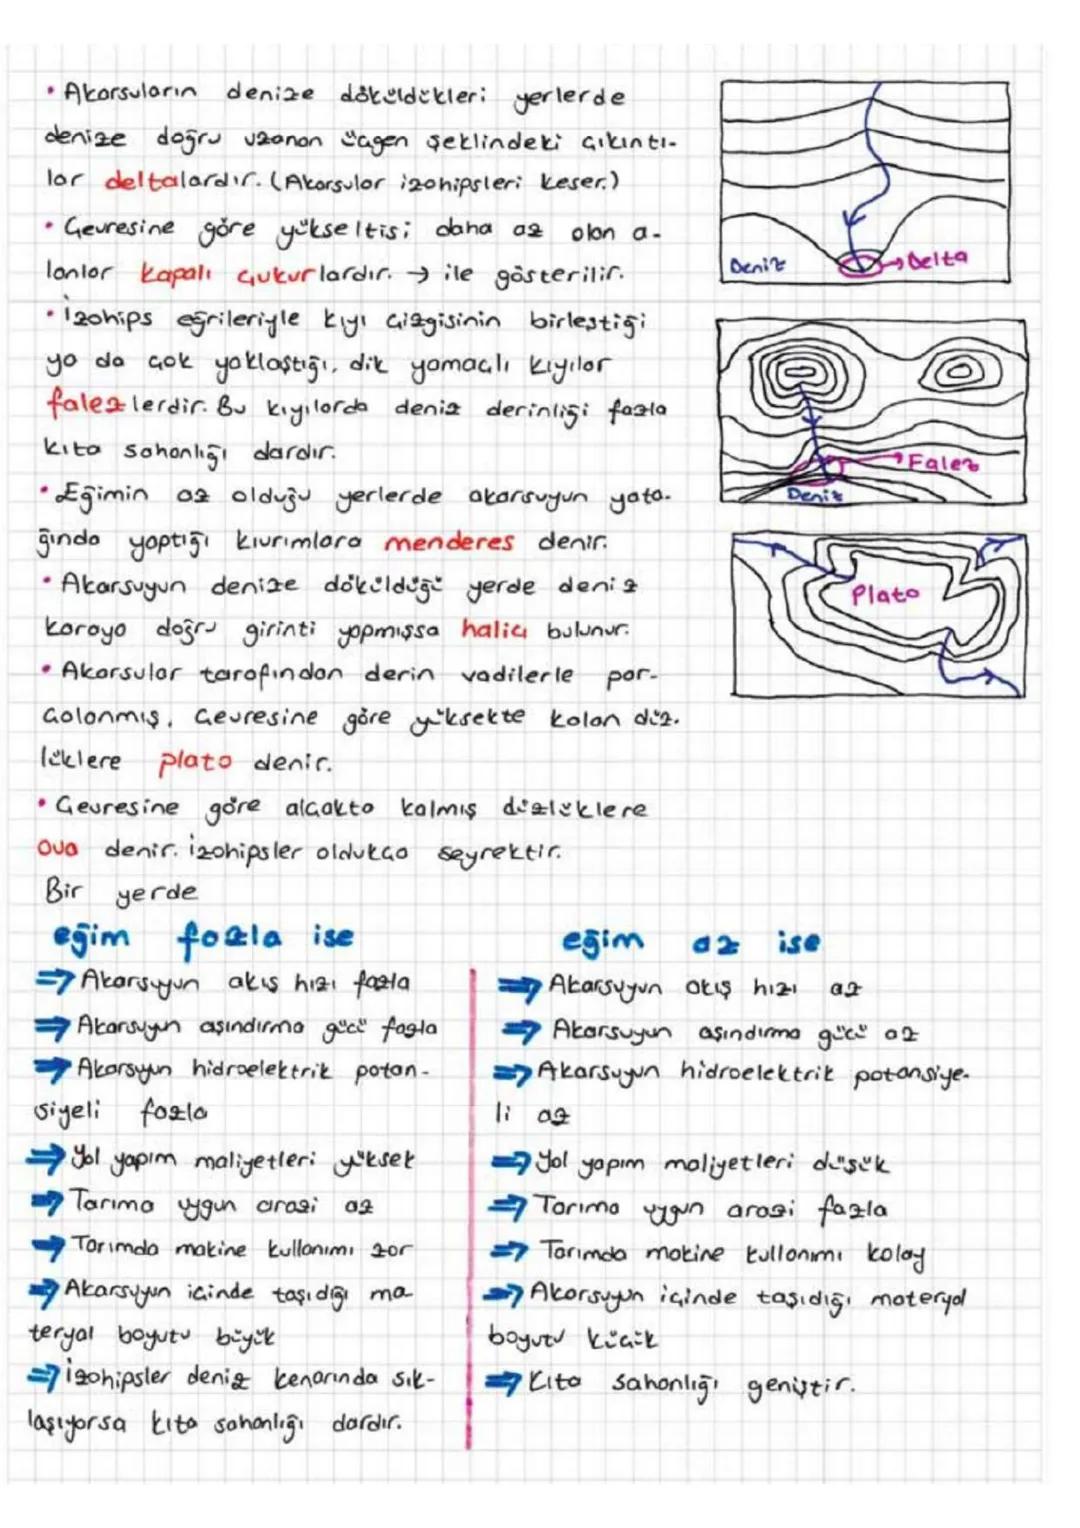 • Akarsuların denize döküldükleri yerlerde
denize doğru uzanan üçgen şeklindeki çıkıntı-
lar deltalardır. (Akarsular izohipsleri keser.)
• Çevresine göre yükseltisi daha az olan a-
lanlar kapalı çukurlardır. → ile gösterilir.
• İzohips eğrileriyle kıyı çizgisinin birleştiği
ya da çok yaklaştığı, dik yamaçlı kıyılar
falezlerdir. Bu kıyılarda deniz derinliği fazla
kıta sahanlığı dardır.
• Eğimin az olduğu yerlerde akarsuyun yata-
ğında yaptığı kıvrımlara menderes denir.
• Akarsuyun denize döküldüğü yerde deniz
karaya doğru girinti yapmışsa haliç bulunur.
• Akarsular tarafından derin vadilerle par-
çalanmış, çevresine göre yüksekte kalan düz-
lüklere plato denir.
• Çevresine göre alçakta kalmış düzlüklere
ova denir. İzohipsler oldukça seyrektir.
Bir yerde
Deniz
Delta
Falez
Deniz
Plato
eğim fazla ise
⇒ Akarsuyun akış hızı fazla
⇒ Akarsuyun aşındırma gücü fazla
⇒ Akarsuyun hidroelektrik potan-
siyeli fazla
⇒ Yol yapım maliyetleri yüksek
⇒ Tarıma uygun arazi az
⇒ Tarımda makine kullanımı zor
⇒ Akarsuyun içinde taşıdığı ma
teryal boyutu büyük
⇒ İzohipsler deniz kenarında sık-
laşıyorsa kıta sahanlığı dardır.
eğim az ise
⇒ Akarsuyun akış hızı az
⇒ Akarsuyun aşındırma gücü az
⇒ Akarsuyun hidroelektrik potansiye-
li az
⇒ Yol yapım maliyetleri düşük
⇒ Tarıma uygun arazi fazla
⇒ Tarımda makine kullanımı kolay
⇒ Akarsuyun içinde taşıdığı materyal
boyutu küçük
⇒ Kıta sahanlığı geniştir.